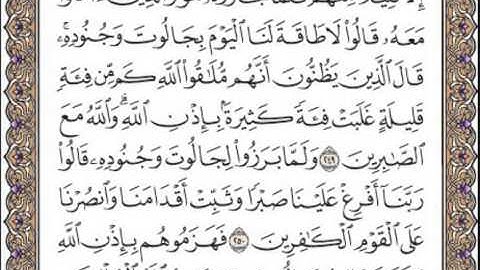 مَعَهُۥ قَالُوا۟ لَا طَاقَةَ لَنَا ٱلْيَوْمَ بِجَالُوتَ وَجُنُودِهِۦۚ
قَالَ ٱلَّذِينَ يَظُنُّونَ أَنَّهُم مُّلَـٰقُوا۟ ٱللَّهِ كَم مِّن فِئَةٍ
قَلِيلَةٍ غَلَبَتْ فِئَةً كَثِيرَةًۢ بِإِذْنِ ٱللَّهِۗ وَٱللَّهُ مَعَ
ٱلصَّـٰبِرِينَ ٢٤٩ وَلَمَّا بَرَزُوا۟ لِجَالُوتَ وَجُنُودِهِۦ قَالُوا۟
رَبَّنَآ أَفْرِغْ عَلَيْنَا صَبْرًا وَثَبِّتْ أَقْدَامَنَا وَٱنصُرْنَا
عَلَى ٱلْقَوْمِ ٱلْكَـٰفِرِينَ ٢٥٠ فَهَزَمُوهُم بِإِذْنِ ٱللَّهِ